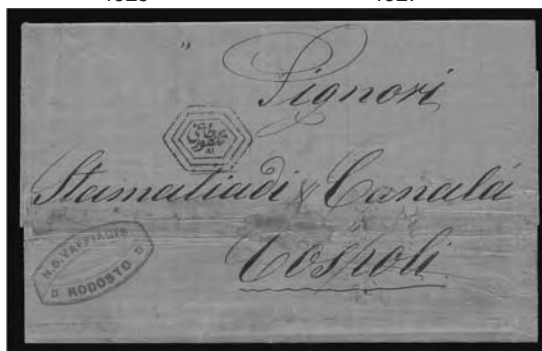 Signori
Stamatiadi & Canalá
Cospoli
N.G. VAFFIADIS
RODOSTO